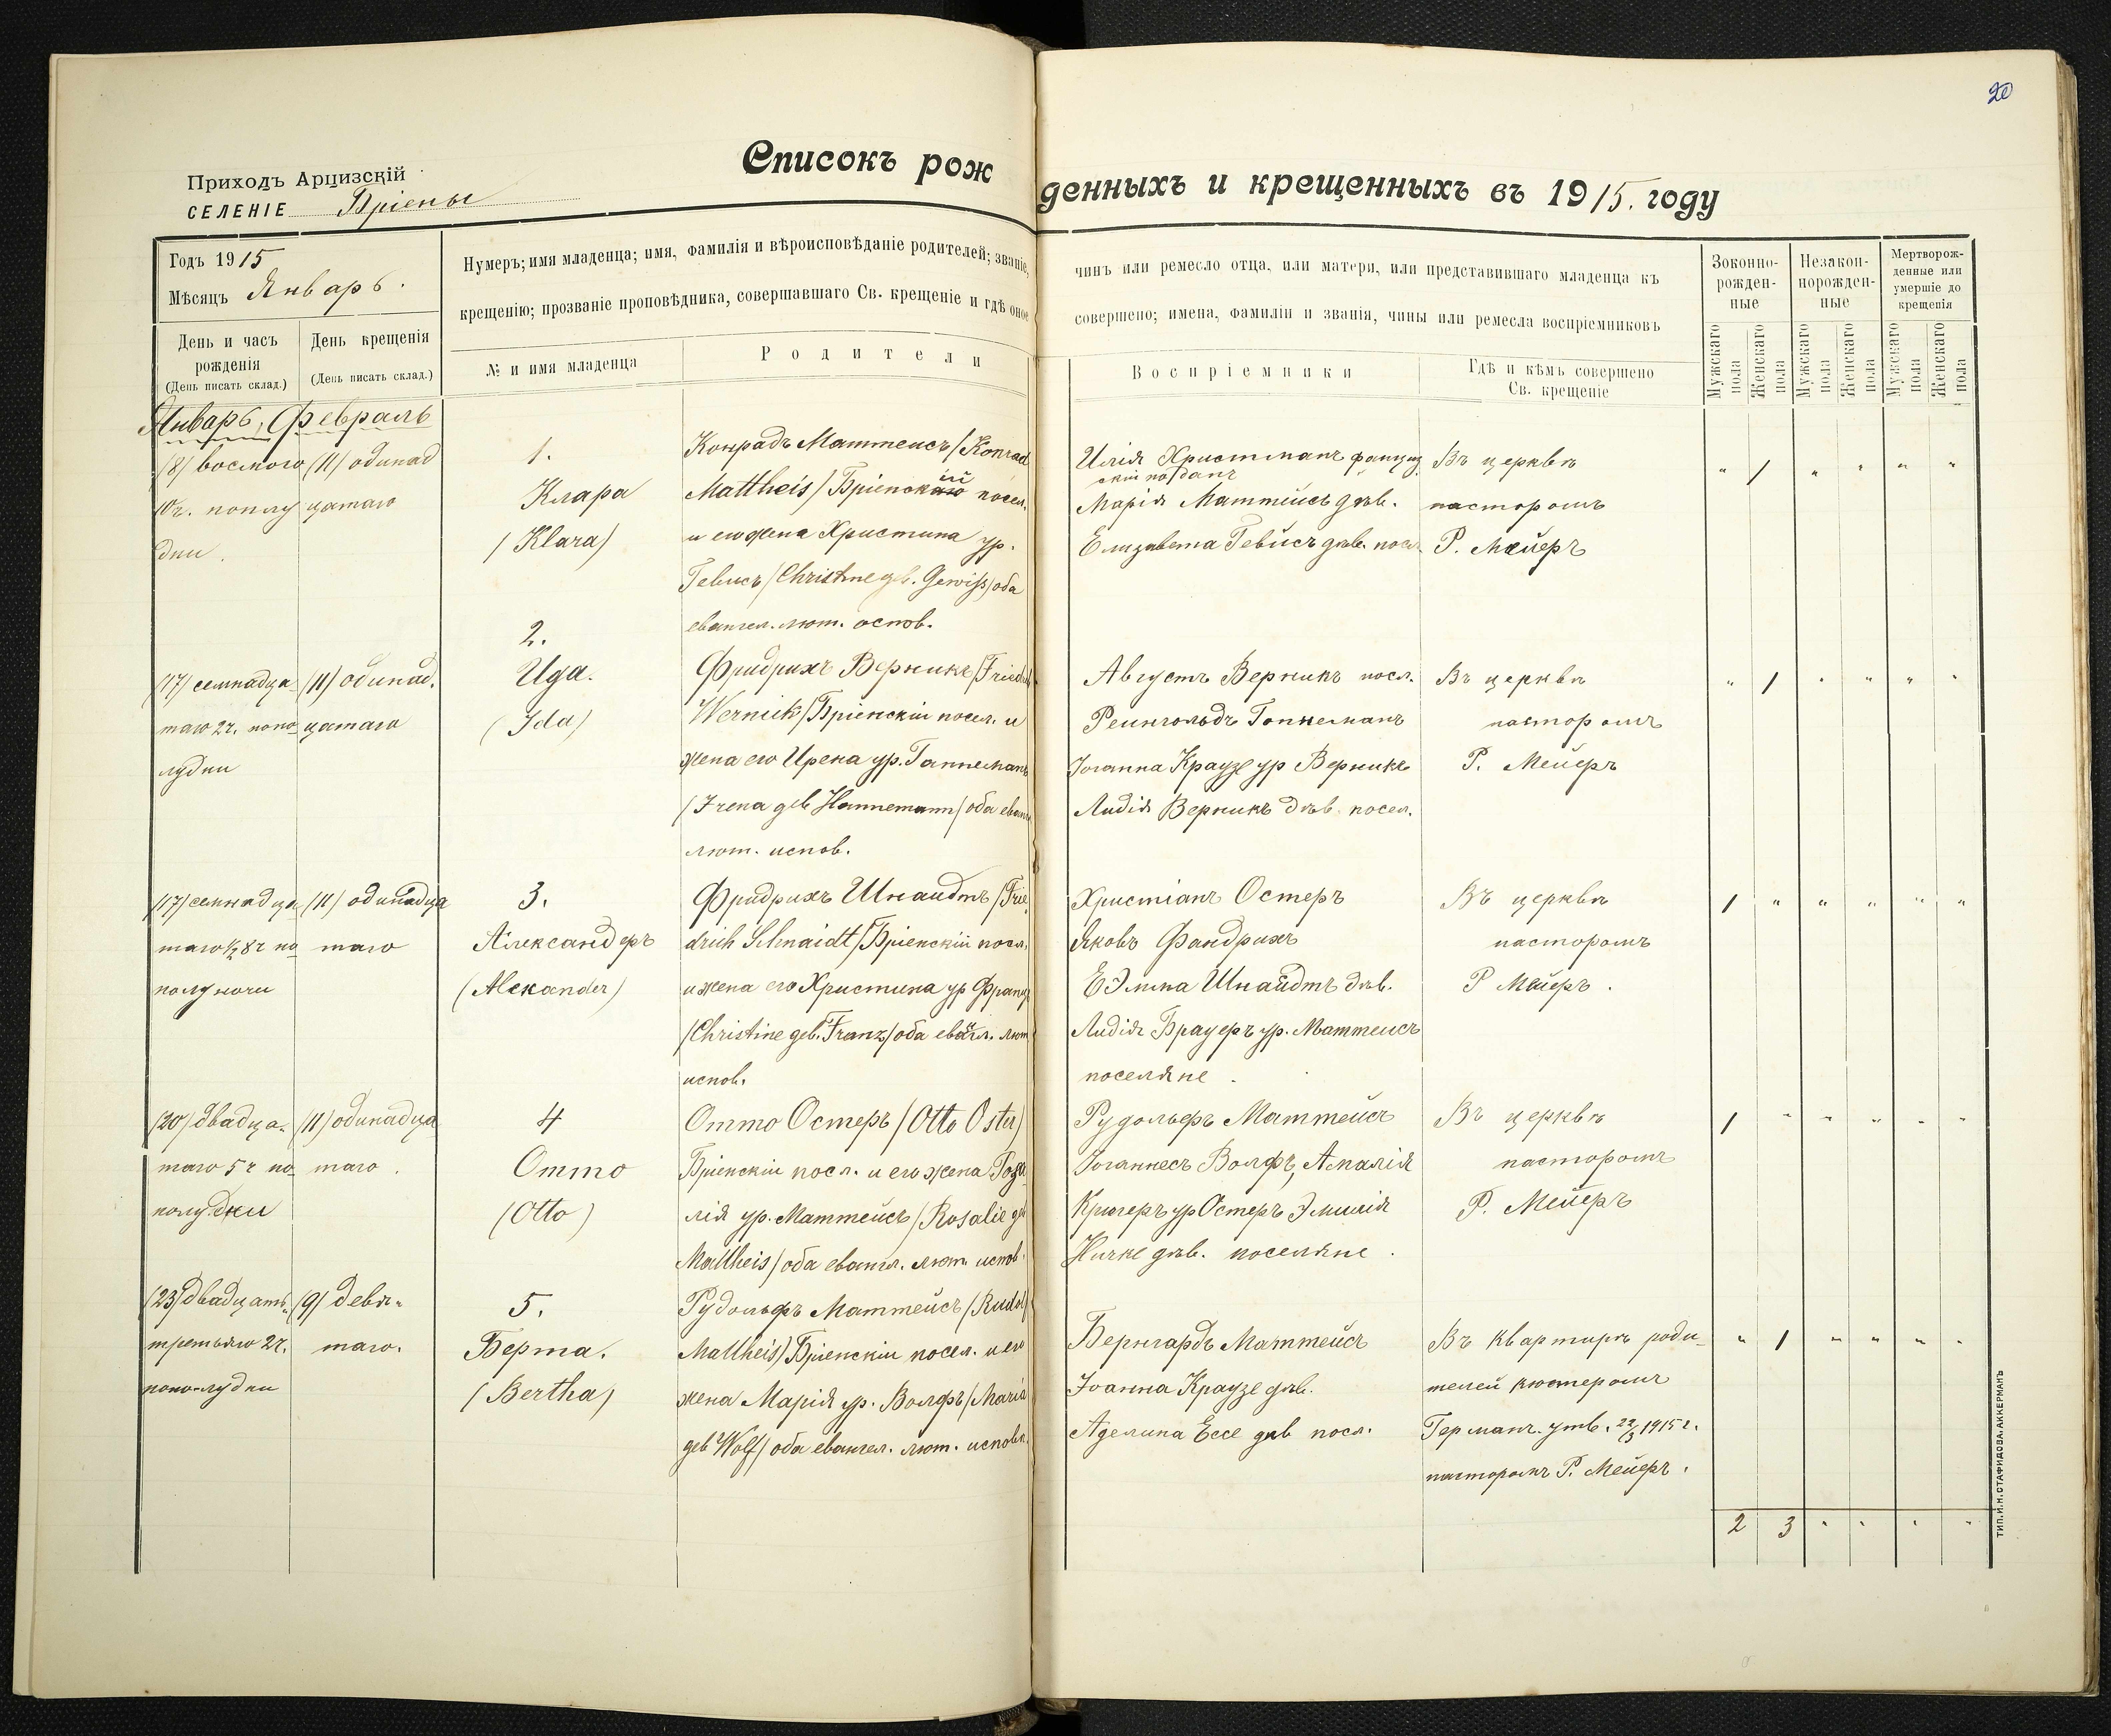 20
Приходъ Арцизскій
СЕЛЕНІЕ Бріены
Списокъ рожденныхъ и крещенныхъ въ 1915. году
Годъ 1915
Мѣсяцъ Январь.
День и часъ рожденія
(День писать склад.)
День крещенія
(День писать склад.)
Нумеръ; имя младенца; имя, фамилія и вѣроисповѣданіе родителей; званіе,
крещенію; прозваніе проповѣдника, совершавшаго Св. крещеніе и гдѣ оное
№ и имя младенца
Родители
чинъ или ремесло отца, или матери, или представившаго младенца къ
совершено; имена, фамиліи и званія, чины или ремесла воспріемниковъ
Воспріемники
Гдѣ и кѣмъ совершено
Св. крещеніе
Зоконно-
рожден-
ные
Незакон-
норожден-
ные
Мертворож-
денные или
умершіе до
крещенія
Мужскаго пола
Женскаго пола
Мужскаго пола
Женскаго пола
Мужскаго пола
Женскаго пола
Январь, Февраль
(8) восмого
10ч. полу
дни.
(11) одинад
цатаго
1.
Клара
(Klara)
Конрадъ Маттеисъ (Konrad
Mattheis) Бріенскій посел.
и его жена Христина ур.
Гевисъ (Christine geb. Gewiß) оба
евангел. лют. испов.
Христманъ
Марія Маттейсъ дѣв.
Елизавета Гевисъ дѣв. посел.
Въ церквѣ
пасторомъ
Р. Мейеръ
" 1 " " " "
(17) семнадца-
таго 2ч. попо
лудни
(11) одинад.
цатаго
2.
Ида.
(Ida)
Фридрихъ Верникъ (Friedrich
Wernick) Бріенскіи посел. и
жена его Ирена ур. Ганнеманъ
(Irena geb Hannemann) оба еванг
лют. испов.
Августъ Верникъ посл.
Реингольдъ Ганнеманъ
Іоганна Краузе ур Верникъ
Лидія Верникъ дѣв. посел.
Въ церквѣ
пасторомъ
Р. Мейеръ
" 1 " " " "
(17) семнадца
таго ½ 8ч по
полуночи
(11) одинадца
таго
3.
Александеръ
(Alexander)
Фридрихъ Шнаидтъ (Frie
drich Schnaidt) Бріенскій посл.
и жена его Христина ур Францъ
(Christine geb. Franz) оба евангл. лют
испов.
Христіанъ Остеръ
Яковъ Фандрихъ
Эмма Шнаидтъ дѣв.
Лидія Брауеръ ур. Маттеисъ
поселяне
Въ церквѣ
пасторомъ
Р Мейеръ.
1 " " " " "
(20) двадца-
таго 5ч по
полудни
(11) одинадца
таго.
4
Отто
(Otto)
Отто Остеръ (Otto Oster)
Бріенскіи посл. и его жена Роза
лія ур. Маттейсъ (Rosalie geb
Mattheis) оба евангл. лют. испов.
Рудольфъ Маттейсъ
Іоганнесъ Волфъ, Амалія
Кригеръ ур Остеръ Эмилія
Ничке дѣв. поселяне.
Въ церквѣ
пасторомъ
Р. Мейеръ
1 " " " " "
(23) двадцать
третьяго 2ч.
пополудни
(9) девя-
таго.
5.
Берта.
(Bertha)
Рудольфъ Маттейсъ (Rudolf
Mattheis) Бріенскіи посел. и его
жена Марія ур. Волфъ (Maria
geb Wolf) оба евангел. лют. исповѣ.
Бернгардъ Маттейсъ
Іоанна Краузе дѣв.
Аделина Ессе дѣв посл.
Въ квартирѣ роди-
телей кюстеромъ
Германъ. утв. 22/3 1915 г.
пасторомъ Р. Мейеръ.
" 1 " " " "
2 3 " " " "
ТИП. И.Н. СТАФИДОВА, АККЕРМАНЪ